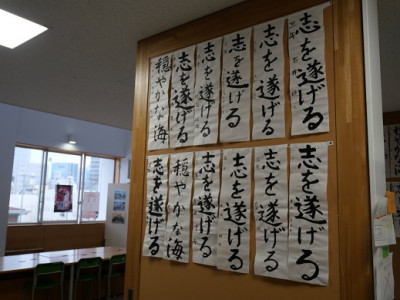 志を遂げる
志を遂げる
志を遂げる
志を遂げる
志を遂げる
穏やかな海
志を遂げる
志を遂げる
志を遂げる
志を遂げる
穏やかな海
志を遂げる